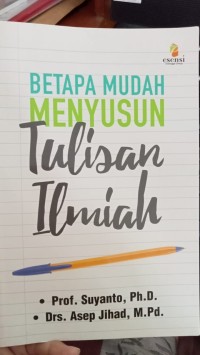 esensi
BETAPA MUDAH
MENYUSUN
Tulisan
Ilmiah
• Prof. Suyanto, Ph.D.
• Drs. Asep Jihad, M.Pd.